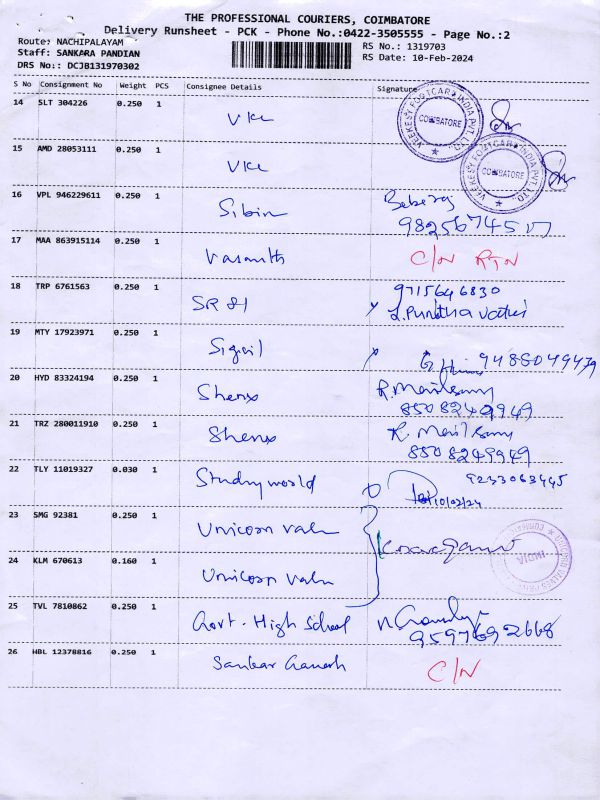 THE PROFESSIONAL COURIERS, COIMBATORE
Delivery Runsheet - PCK - Phone No.:0422-3505555 - Page No.:2
Route: NACHIPALAYAM
RS No.: 1319703
Staff: SANKARA PANDIAN
RS Date: 10-Feb-2024
DRS No:: DCJB131970302
S No Consignment No Weight PCS Consignee Details Signature
14 SLT 304226 0.250 1 VKC
VEEKESY FOOTCARE INDIA PVT. LTD. COIMBATORE
15 AMD 28053111 0.250 1 VKC
VEEKESY FOOTCARE INDIA PVT. LTD. COIMBATORE
16 VPL 946229611 0.250 1 Sibin
17 MAA 863915114 0.250 1 Vasanth C/N RTN
18 TRP 6761563 0.250 1 SR 81 9715646830
L. Punitha vathi
19 MTY 17923971 0.250 1 9488049479
20 HYD 83324194 0.250 1 Shenx
8508249949
21 TRZ 280011910 0.250 1 Shenx
8508249949
22 TLY 11019327 0.030 1 Studyworld 9233063445
10/02/24
23 SMG 92381 0.250 1 Unicorn valu
24 KLM 670613 0.160 1 Unicorn valu
INDIA
25 TVL 7810862 0.250 1 Govt. High School
9597692668
26 HBL 12378816 0.250 1 Sankar Ganesh C/N